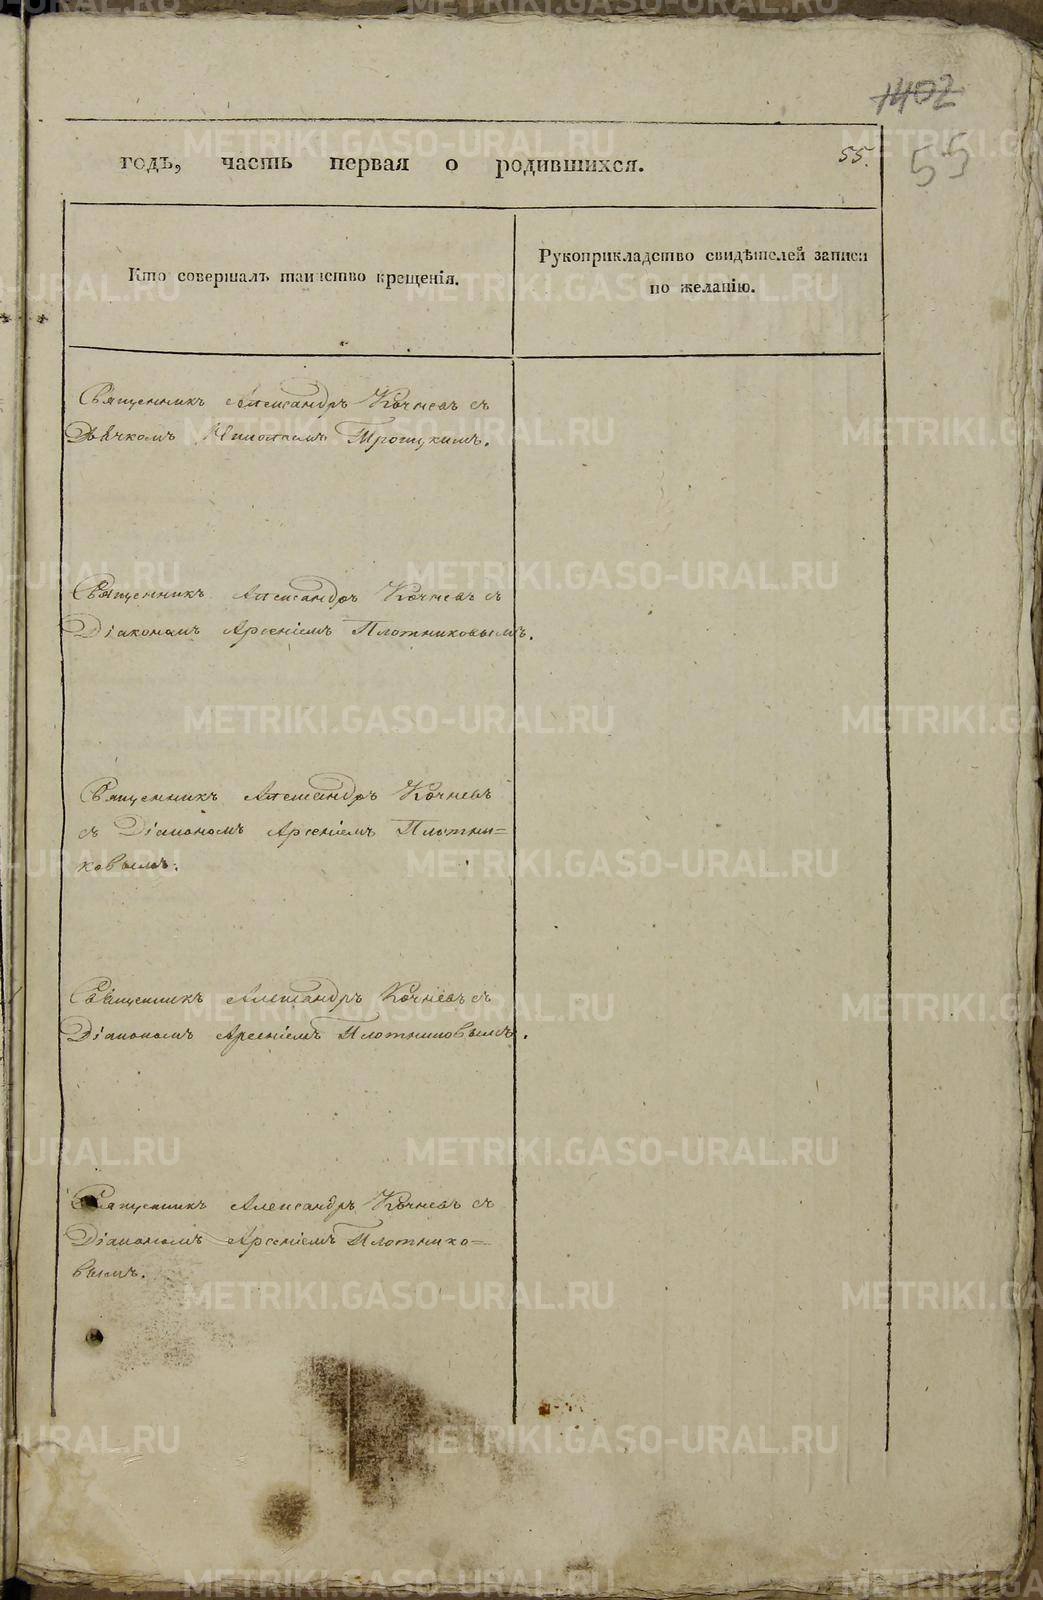 1402
годъ, часть первая о родившихся. 55. 55
Кто совершалъ таинство крещенія.
Рукоприкладство свидѣтелей записи
по желанію.
Священникъ Александръ Кочневъ съ
Дьячкомъ Троицкимъ.
Священникъ Александръ Кочневъ съ
Діакономъ Арсеніемъ Плотниковымъ.
Священникъ Александръ Кочневъ
съ Діакономъ Арсеніемъ Плотни=
ковымъ.
Священникъ Александръ Кочневъ съ
Діакономъ Арсеніемъ Плотниковымъ.
Священникъ Александръ Кочневъ съ
Діакономъ Арсеніемъ Плотнико=
вымъ.
METRIKI.GASO-URAL.RU